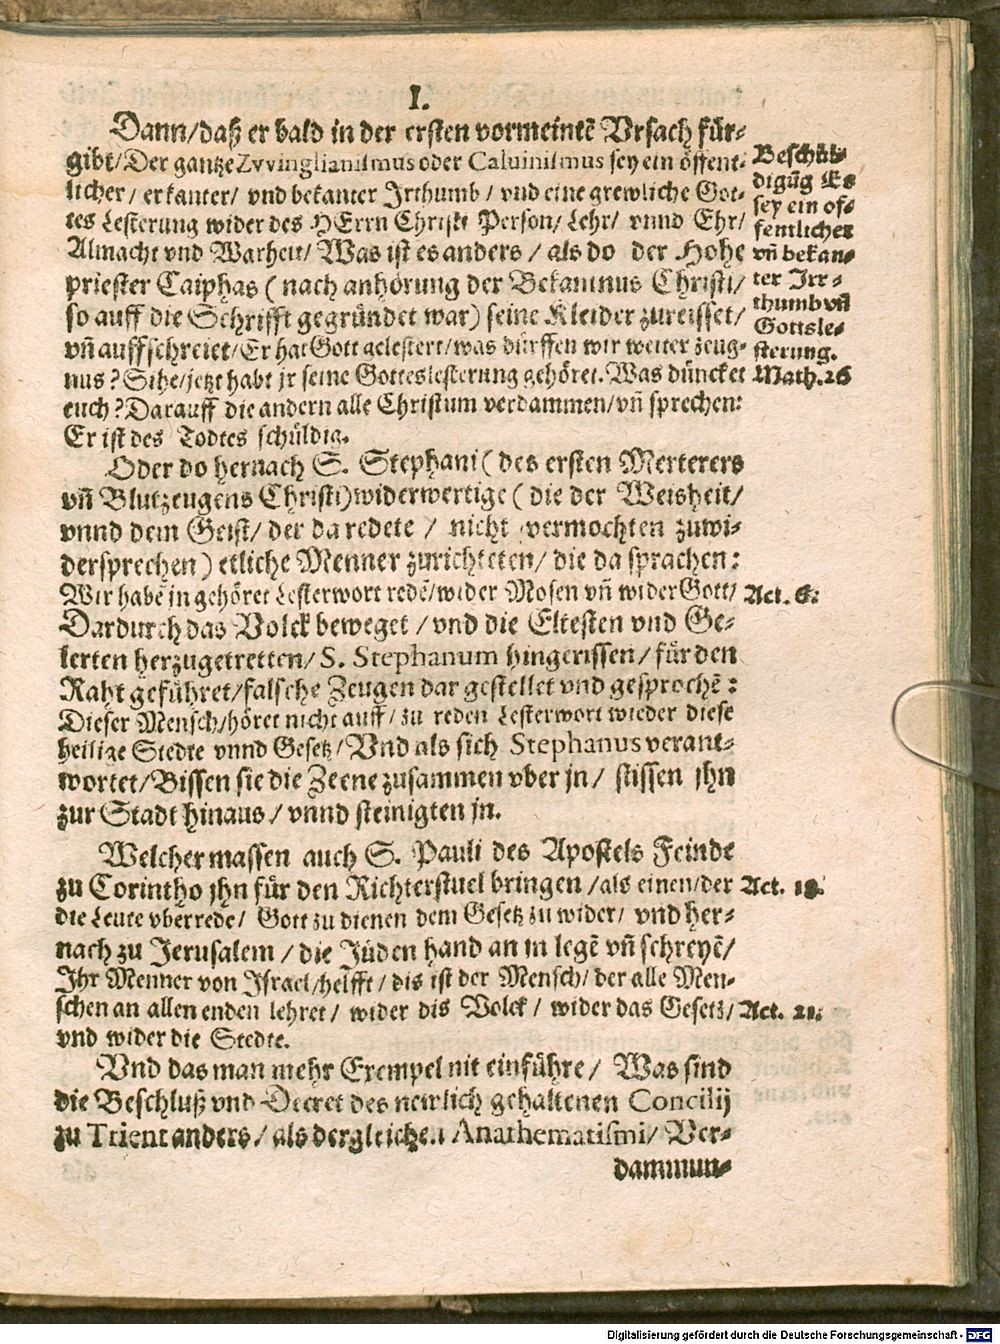 I.
Dann/daß er bald in der ersten vormeintē Vrsach für⸗
gibt/Der gantze Zvvinglianismus oder Caluinismus sey ein öffent⸗
licher/ erkanter/ vnd bekanter Irthumb/ vnd eine grewliche Got⸗
tes Lesterung wider des HErrn Christi Person/ Lehr/ vnnd Ehr/
Almacht vnd Warheit/ Was ist es anders/ als do der Hohe
priester Caiphas (nach anhörung der Bekantnus Christi/
so auff die Schrifft gegründet war) seine Kleider zureisset/
vñ auffschreiet/Er hat Gott gelestert/was dürffen wir weiter zeug⸗
nus? Sihe/jetzt habt jr seine Gotteslesterung gehöret. Was düncket
euch? Darauff die andern alle Christum verdammen/vñ sprechen:
Er ist des Todtes schüldig.
Beschül⸗
digūg Es
sey ein of⸗
fentlicher
vñ bekan⸗
ter Irr⸗
thumb vñ
Gottsle⸗
sterung.
Math. 26
Oder do hernach S. Stephani (des ersten Merterers
vñ Blutzeugens Christi) widerwertige (die der Weisheit/
vnnd dem Geist/ der da redete/ nicht vermochten zuwi⸗
dersprechen) etliche Menner zurichteten/ die da sprachen:
Wir habē jn gehöret Lesterwort redē/wider Mosen vñ wider Gott/
Act. 6.
Dardurch das Volck beweget/ vnd die Eltesten vnd Ge⸗
lerten herzugetretten/ S. Stephanum hingerissen/ für den
Raht geführet/falsche Zeugen dar gestellet vnd gesprochē:
Dieser Mensch/höret nicht auff/ zu reden Lesterwort wieder diese
heilige Stedte vnnd Gesetz/ Vnd als sich Stephanus verant⸗
wortet/Bissen sie die Zeene zusammen vber jn/ stissen jhn
zur Stadt hinaus/ vnnd steinigten jn.
Welcher massen auch S. Pauli des Apostels Feinde
zu Corintho jhn für den Richterstuel bringen/als einen/der
Act. 18.
die Leute vberrede/ Gott zu dienen dem Gesetz zu wider/ vnd her⸗
nach zu Jerusalem/ die Jüden hand an jn legē vñ schreyē/
Ihr Menner von Israel/helfft/ dis ist der Mensch/ der alle Men⸗
schen an allen enden lehret/ wider dis Volck/ wider das Gesetz/
Act. 21.
vnd wider die Stedte.
Vnd das man mehr Exempel nit einführe/ Was sind
die Beschluß vnd Decret des newlich gehaltenen Concilij
zu Trient anders/ als dergleichen Anathematismi/ Ver⸗
dammun⸗
Digitalisierung gefördert durch die Deutsche Forschungsgemeinschaft - DFG